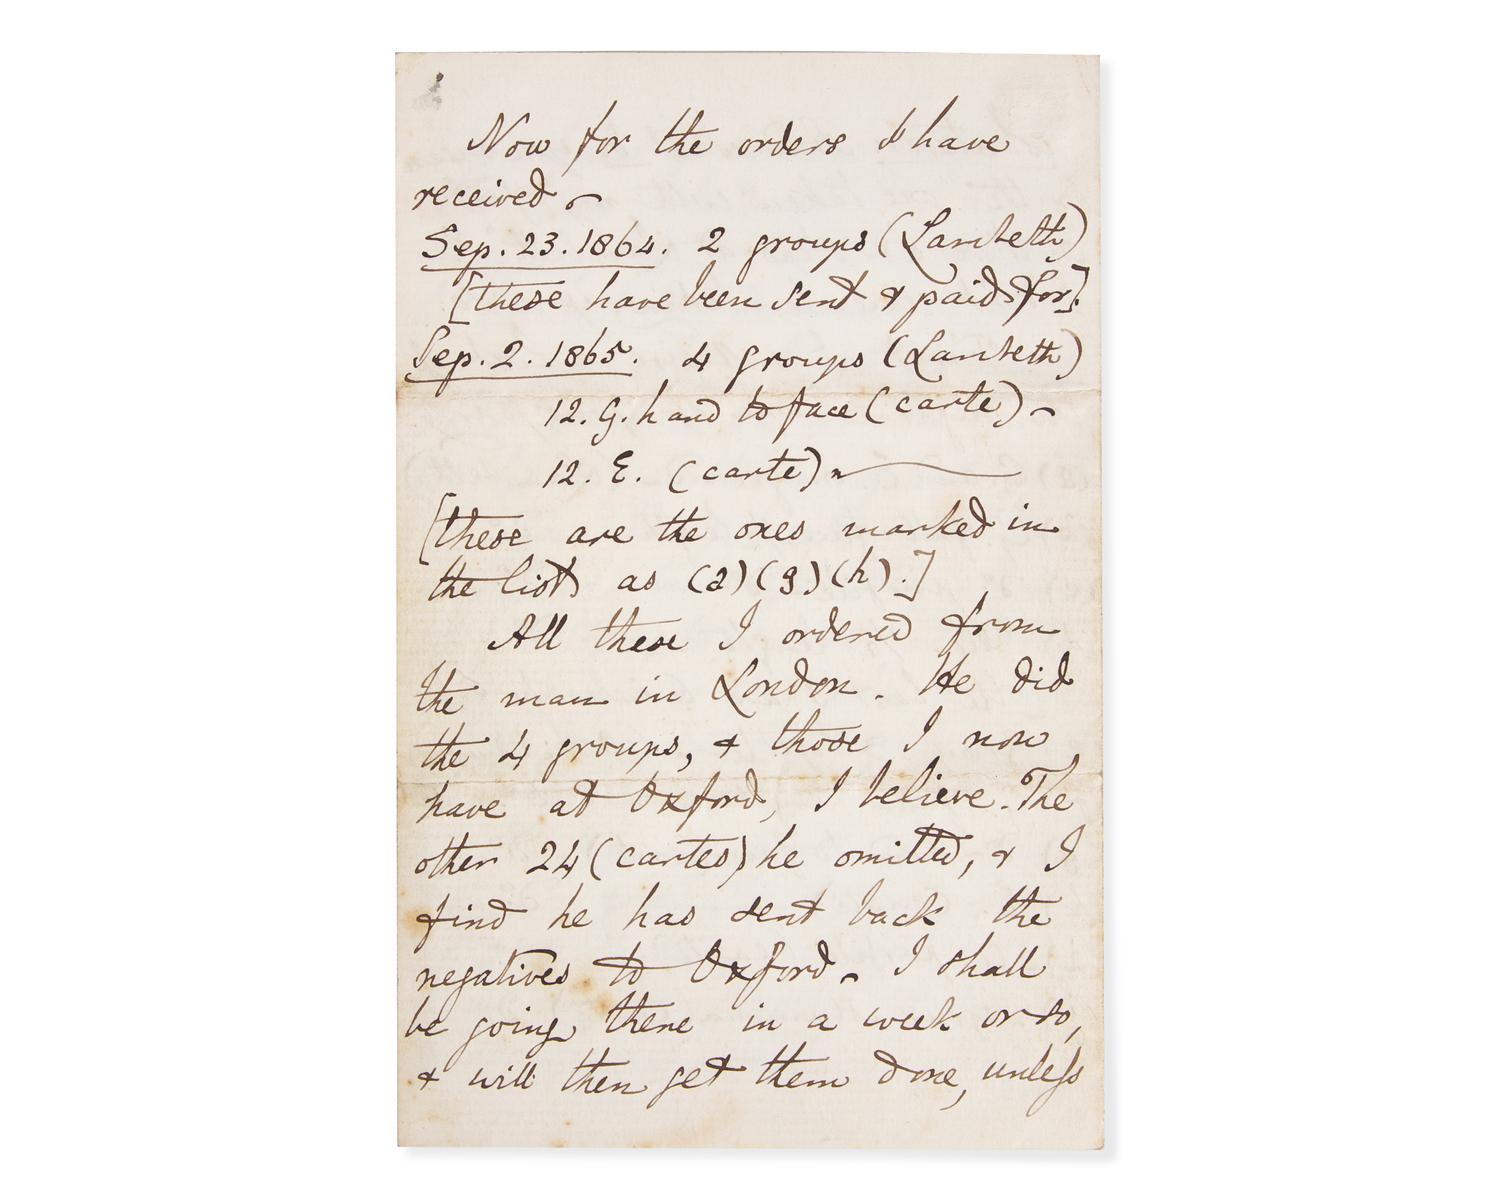 Now for the orders I have
received –
Sep. 23. 1864. 2 groups (Lambeth)
[these have been sent & paid for].
Sep. 2. 1865. 4 groups (Lambeth)
12. G. hand to face (carte) –
12. E. (carte) –
[these are the ones marked in
the list as (a) (g) (h).]
All these I ordered from
the man in London. He did
the 4 groups, & those I now
have at Oxford, I believe. The
other 24 (cartes) he omitted, & I
find he has sent back the
negatives to Oxford. I shall
be going there in a week or so,
& will then get them done, unless